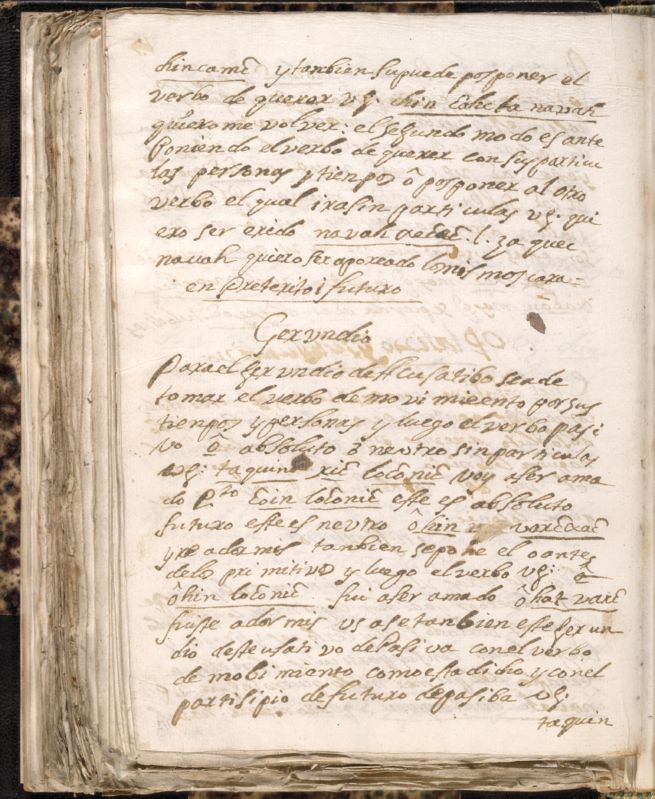 hincamic y tanbien se puede posponer el
verbo de querer vg: chin tzolecta navah
quiero me volver: el segundo modo es ante
poniendo el verbo de querer con sus particu
las personas y tiempos ô posponer al otro
verbo el qual ira sin particulas vg: qui
ero ser navah .l. za quec
navah quiero ser aporeado lo mismo sera
en preterito i futuro
Gerundio
Para el gerundio de Acusatibo sea de
tomar el verbo de movimiento por sus
tienpos y personas y luego el verbo pasi
vo ô absoluto ô neutro sin particulas
vg: taquino loconic voy a ser ama
do Pto loconic este es absoluto
futuro este es neutro ôhin
yre a dormir tanbien se pone el o antes
delos primitivos y luego el verbo vg:
ôhin loconic fui a ser amado ôhat
fuiste a dormir usase tanbien este gerun
dio de acusativo de Pasiva con el verbo
de mobimiento como esta dicho y con el
partisipio de futuro de pasiba vg:
taquin